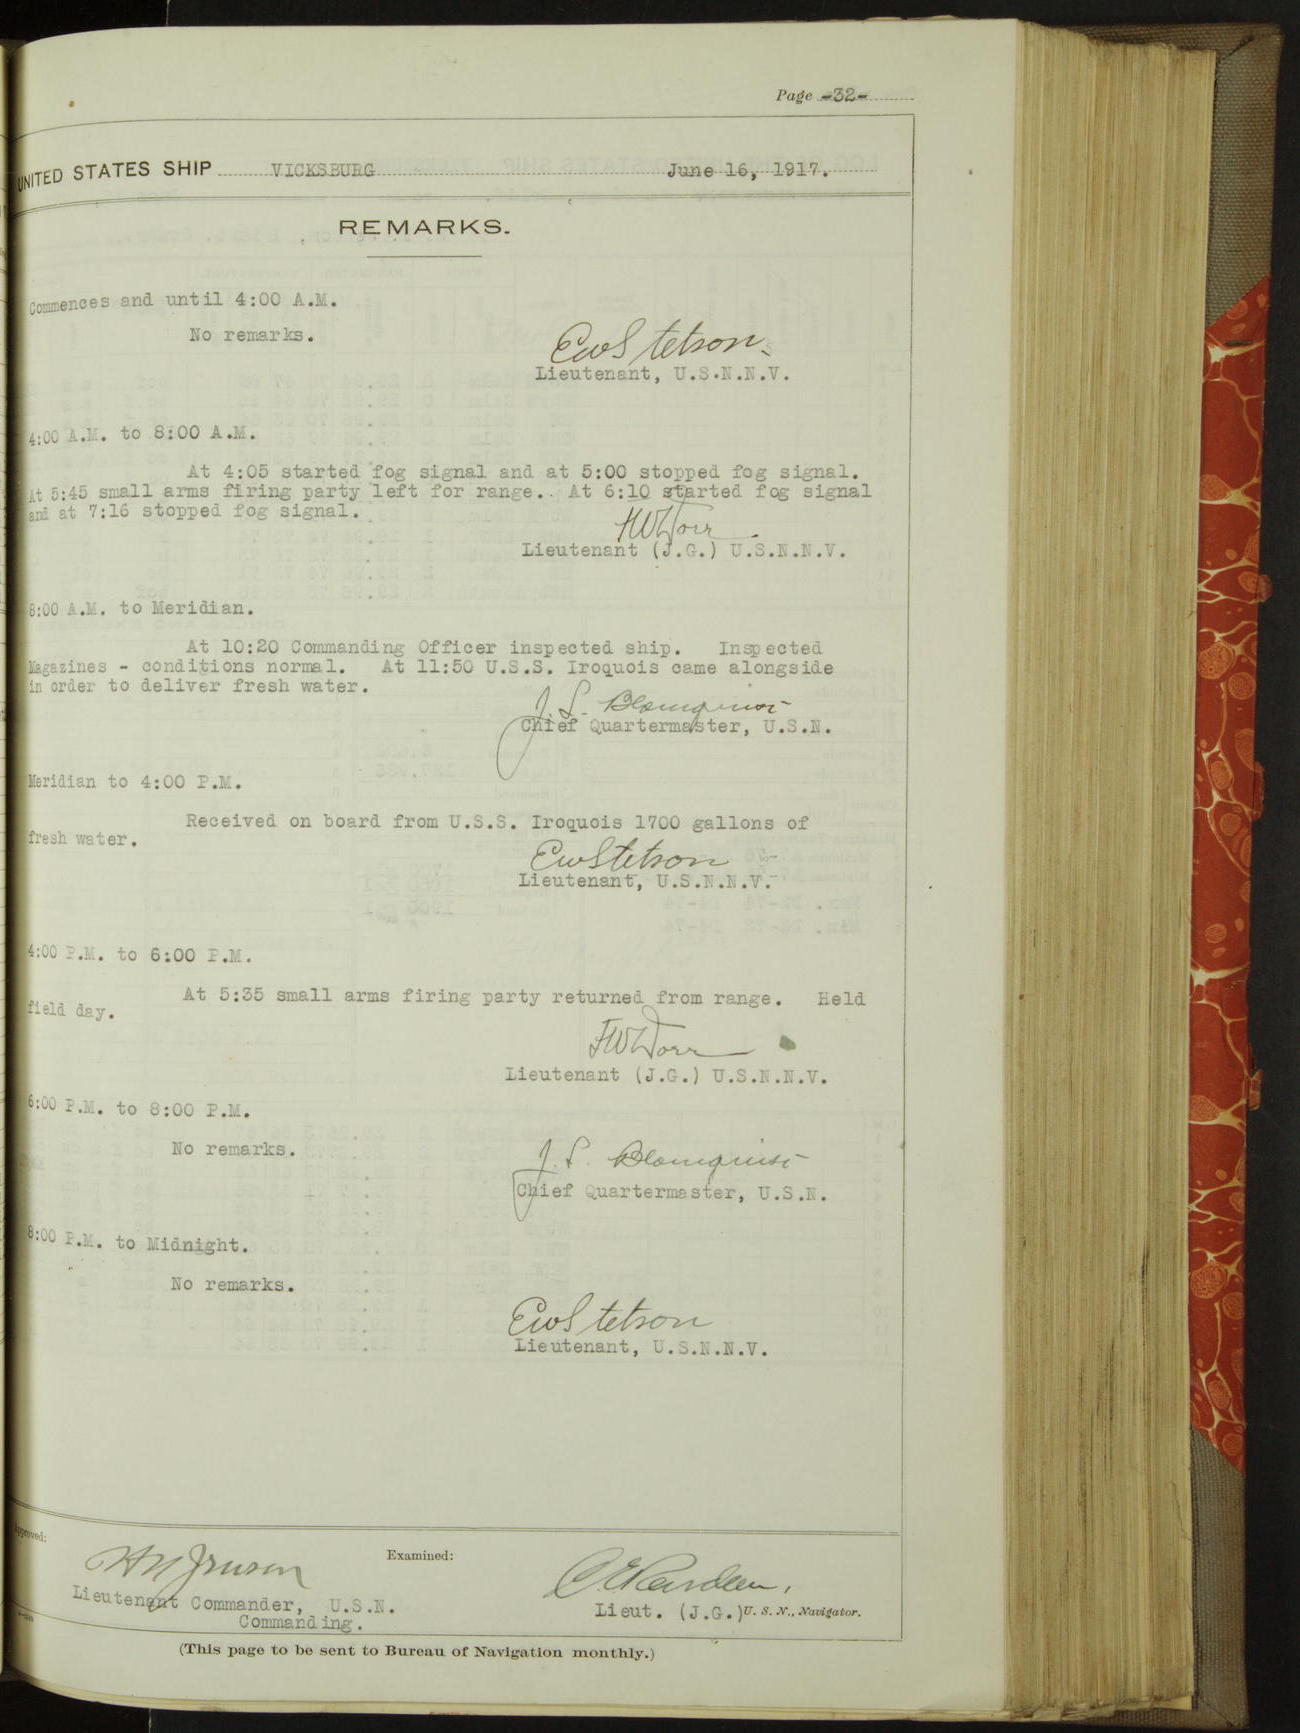 Page -32-
UNITED STATES SHIP VICKSBURG June 16, 1917.
REMARKS.
Commences and until 4:00 A.M.
No remarks.
EWStetson
Lieutenant, U.S.N.N.V.
4:00 A.M. to 8:00 A.M.
At 4:05 started fog signal and at 5:00 stopped fog signal.
At 5:45 small arms firing party left for range. At 6:10 started fog signal
and at 7:16 stopped fog signal.
Lieutenant (J.G.) U.S.N.N.V.
8:00 A.M. to Meridian.
At 10:20 Commanding Officer inspected ship. Inspected
Magazines - conditions normal. At 11:50 U.S.S. Iroquois came alongside
in order to deliver fresh water.
J. S. Blomquist
Chief Quartermaster, U.S.N.
Meridian to 4:00 P.M.
Received on board from U.S.S. Iroquois 1700 gallons of
fresh water.
EWStetson
Lieutenant, U.S.N.N.V.
4:00 P.M. to 6:00 P.M.
At 5:35 small arms firing party returned from range. Held
field day.
Lieutenant (J.G.) U.S.N.N.V.
6:00 P.M. to 8:00 P.M.
No remarks.
J. S. Blomquist
Chief Quartermaster, U.S.N.
8:00 P.M. to Midnight.
No remarks.
EWStetson
Lieutenant, U.S.N.N.V.
Approved:
Examined:
Lieutenant Commander, U.S.N.
Commanding.
Lieut. (J.G.) U. S. N., Navigator.
(This page to be sent to Bureau of Navigation monthly.)